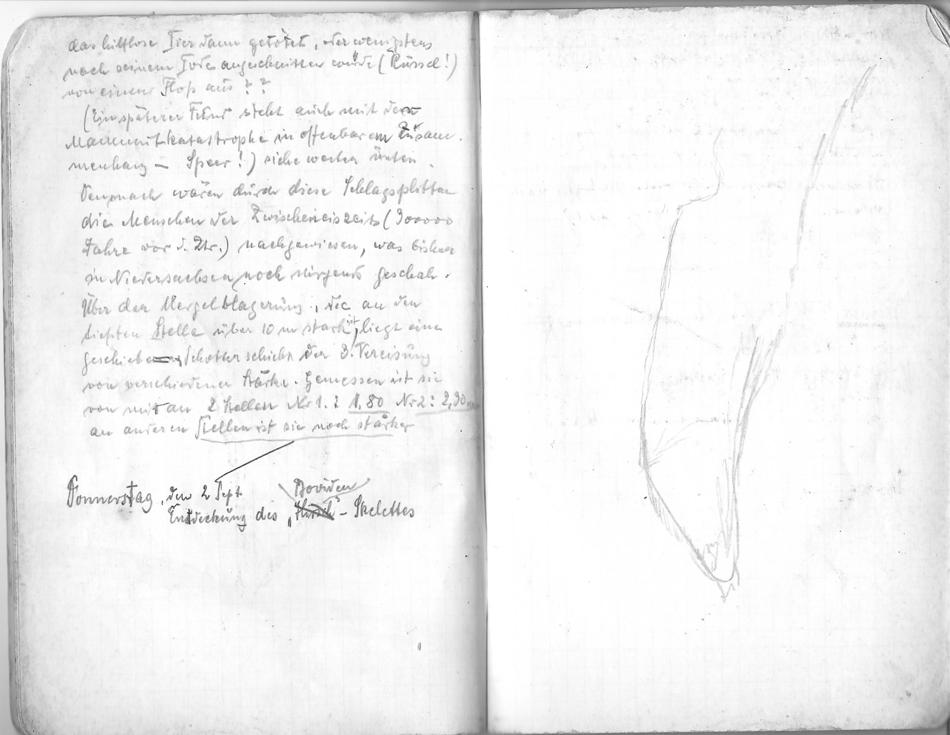 das hilflose Tier dann getötet, oder wenigstens
nach seinem Tode angeschnitten wurde (Rüssel!)
von einem Floß aus??
(Ein späterer Fund steht auch mit der
Mammutkatastrophe in offenbarem Zusam-
menhang – Speer!) siehe weiter unten.
Demnach wären durch diese Schlagsplitter
die Menschen der Zwischeneiszeit (300000
Jahre vor d. Ztr.) nachgewiesen, was bisher
in Niedersachsen noch nirgends geschah.
Über der Mergelablagerung, die an den
tiefsten Stelle über 10 m stark ist, liegt eine
geschiebe Schotterschicht der 3. Vereisung
von verschiedener Stärke. Gemessen ist sie
von mir an 2 Stellen Nr 1.: 1,80 Nr 2: 2,30
an anderen Stellen ist sie noch stärker
Donnerstag, den 2 Sept.
Boviden
Entdeckung des „Hirsch“-Skelettes